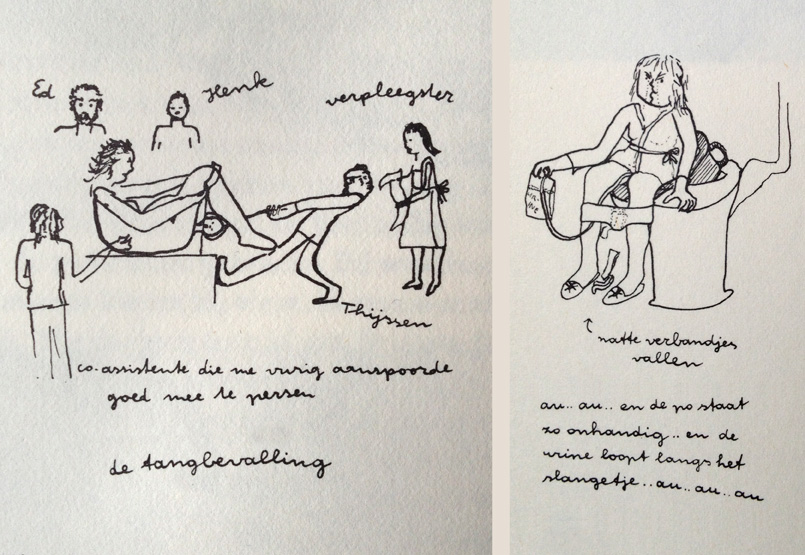 Ed
Henk
verpleegster
Thijssen
co-assistente die me vurig aanspoorde
goed mee te persen
de tangbevalling
natte verbandjes
vallen
au.. au.. en de po staat
zo onhandig.. en de
urine loopt langs het
slangetje.. au.. au.. au